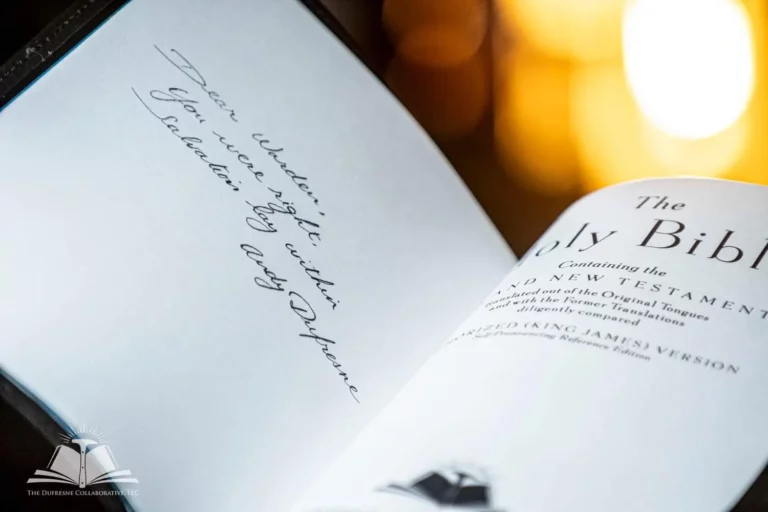 Dear Warden,
You were right.
Salvation lay within
Andy Dufresne
The
oly Bibl
Containing the
AND NEW TESTAMENT
Translated out of the Original Tongues
and with the Former Translations
diligently compared
ORIZED (KING JAMES) VERSION
Self-Pronouncing Reference Edition
THE DUFRESNE COLLABORATIVE, LLC